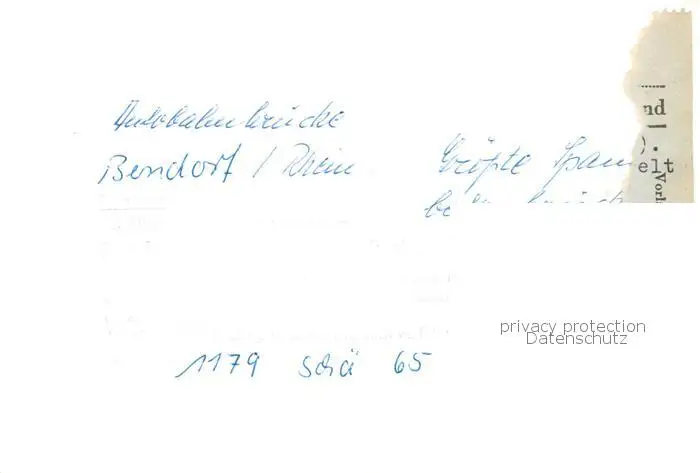 Autobahnbrücke
Bendorf / Rhein
Größte Span
nd
).
elt
Vorl
privacy protection
Datenschutz
1179 Schä 65